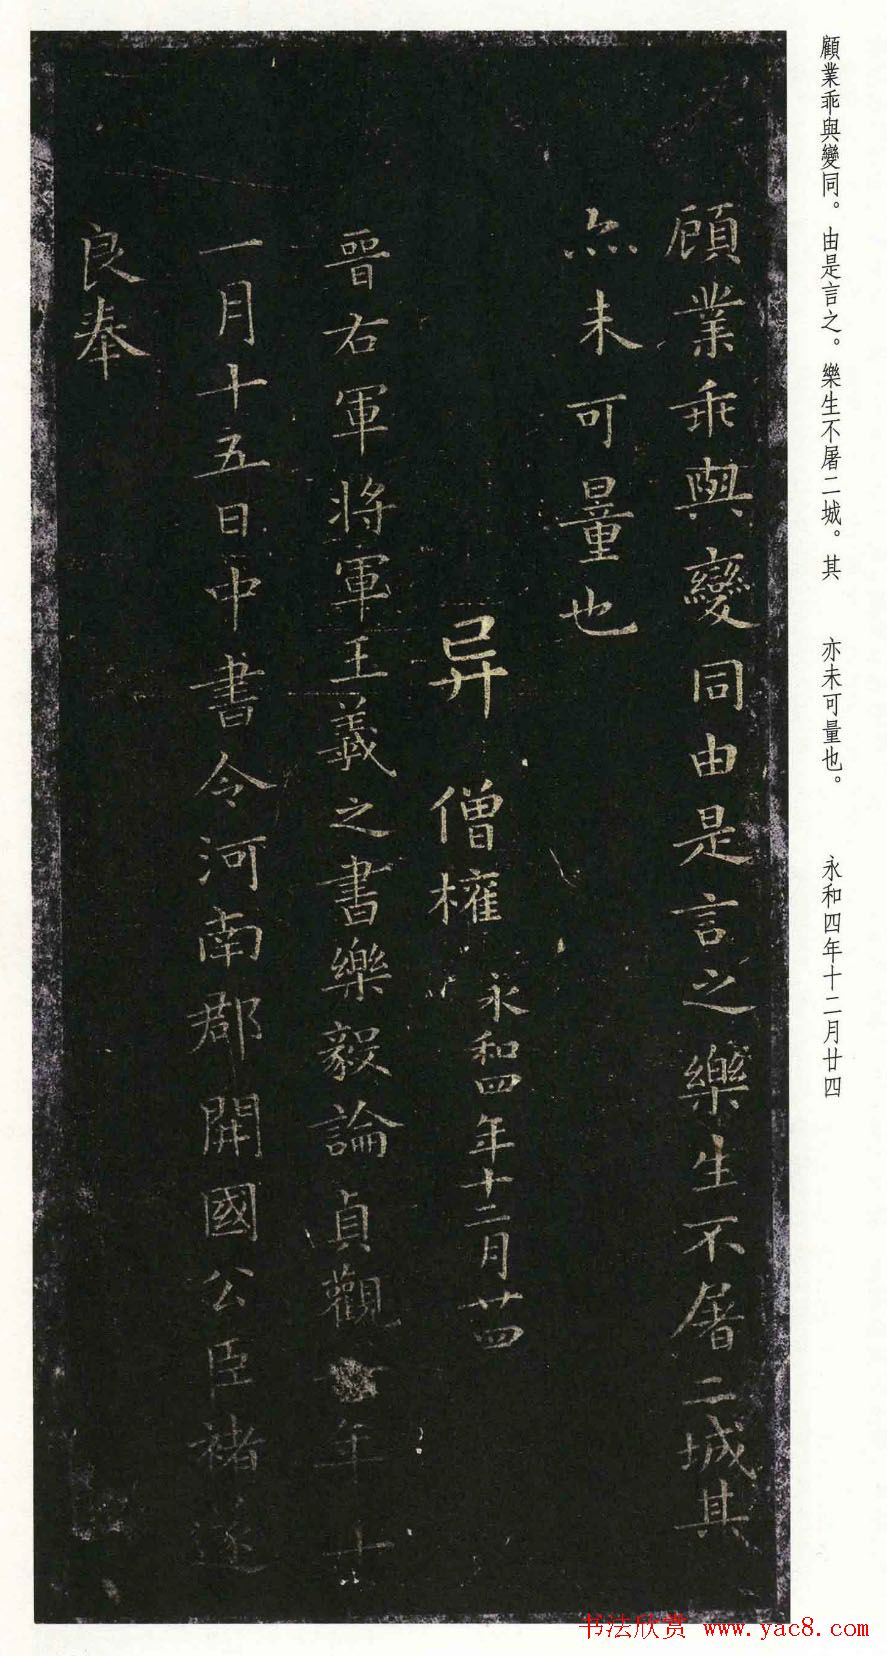 顧業乖與變同。由是言之。樂生不屠二城。其　亦未可量也。　永和四年十二月廿四
顧業乖與變同由是言之樂生不屠二城其
亦未可量也
异 僧權 永和四年十二月廿四
晋右軍將軍王羲之書樂毅論貞觀年十
一月十五日中書令河南郡開國公臣褚遂
良奉
书法欣赏 www.yac8.com